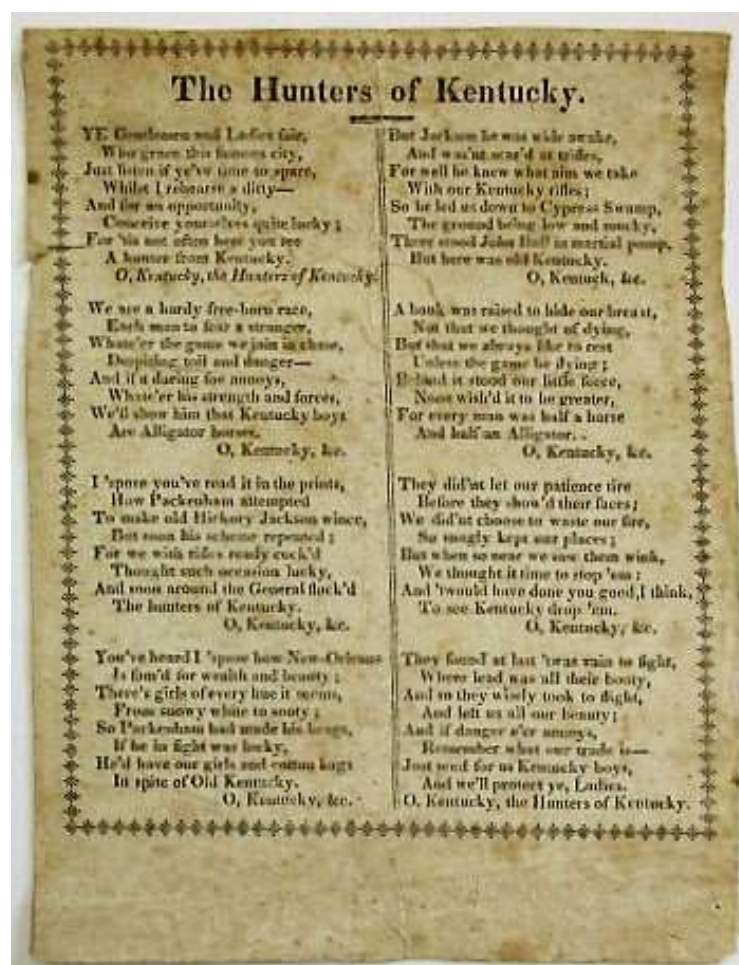 The Hunters of Kentucky.
YE Gentlemen and Ladies fair,
Who grace this famous city,
Just listen if ye've time to spare,
Whilst I rehearse a ditty—
And for an opportunity,
Conceive yourselves quite lucky;
For 'tis not often here you see
A hunter from Kentucky.
O, Kentucky, the Hunters of Kentucky.
We are a hardy free-born race,
Each man to fear a stranger,
Whate'er the game we join in chase,
Despising toil and danger—
And if a daring foe annoys,
Whate'er his strength and forces,
We'll show him that Kentucky boys
Are Alligator horses.
O, Kentucky, &c.
I 'spose you've read it in the prints,
How Packenham attempted
To make old Hickory Jackson wince,
But soon his scheme repented;
For we with rifles ready cock'd
Thought such occasion lucky,
And soon around the General flock'd
The hunters of Kentucky.
O, Kentucky, &c.
You've heard I 'spose how New-Orleans
Is fam'd for wealth and beauty;
There's girls of every hue it seems,
From snowy white to sooty;
So Packenham had made his brags,
If he in fight was lucky,
He'd have our girls and cotton bags
In spite of Old Kentucky.
O, Kentucky, &c.
But Jackson he was wide awake,
And was'nt scar'd at trifles,
For well he knew what aim we take
With our Kentucky rifles;
So he led us down to Cypress Swamp,
The ground being low and mucky,
There stood John Bull in martial pomp,
But here was old Kentucky.
O, Kentuck, &c.
A bank was raised to hide our breast,
Not that we thought of dying,
But that we always like to rest
Unless the game be flying;
Behind it stood our little force,
None wish'd it to be greater,
For every man was half a horse
And half an Alligator.
O, Kentucky, &c.
They did'nt let our patience tire
Before they show'd their faces;
We did'nt choose to waste our fire,
So snugly kept our places;
But when so near we saw them wink,
We thought it time to stop 'em;
And 'twould have done you good, I think,
To see Kentucky drop 'em.
O, Kentucky, &c.
They found at last 'twas vain to fight,
Where lead was all their booty,
And so they wisely took to flight,
And left us all our beauty;
And if danger e'er annoys,
Remember what our trade is—
Just send for us Kentucky boys,
And we'll protect ye, Ladies.
O, Kentucky, the Hunters of Kentucky.